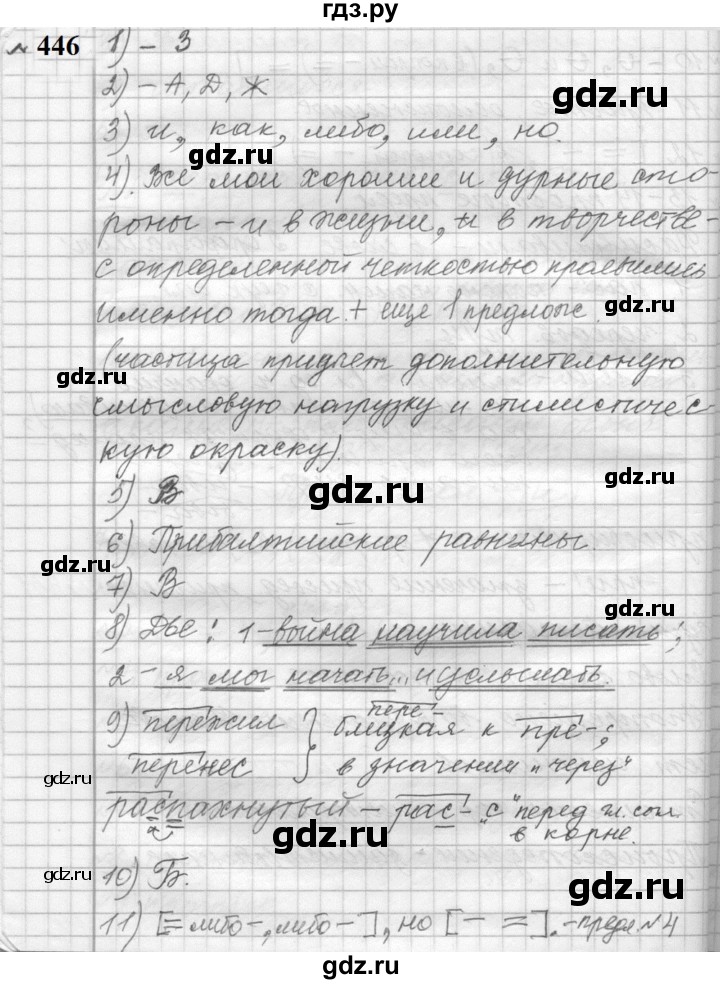 гдз.ру
№ 446 1) - З
2) - А, Д, Ж
gdz.ru
3) и, как, либо, или, но.
gdz.ru
4). Все мои хорошие и дурные сто-
gdz.ru
роны - и в жизни, и в творчестве -
с определенной четкостью проявились
gdz.ru
именно тогда. + еще 1 предлож.
(частица придает дополнительную
gdz.ru
gdz.ru
смысловую нагрузку и стилистичес-
кую окраску).
gdz.ru
5) В
gdz.ru
6) Прибалтийские равнины.
gdz.ru
7) В
gdz.ru
8) Две: 1 - война научила писать;
2 - я мог начать... и услышать.
9) пережил } близкая к пре-;
пере-
перенес } в значении "через"
gdz.ru
gdz.ru
распахнутый - рас- "с" перед гл. согл.
в корне.
gdz.ru
10) Б.
gdz.ru
gdz.ru
11) [= либо -, либо -], но [- =]. - предл. №4
gdz.ru